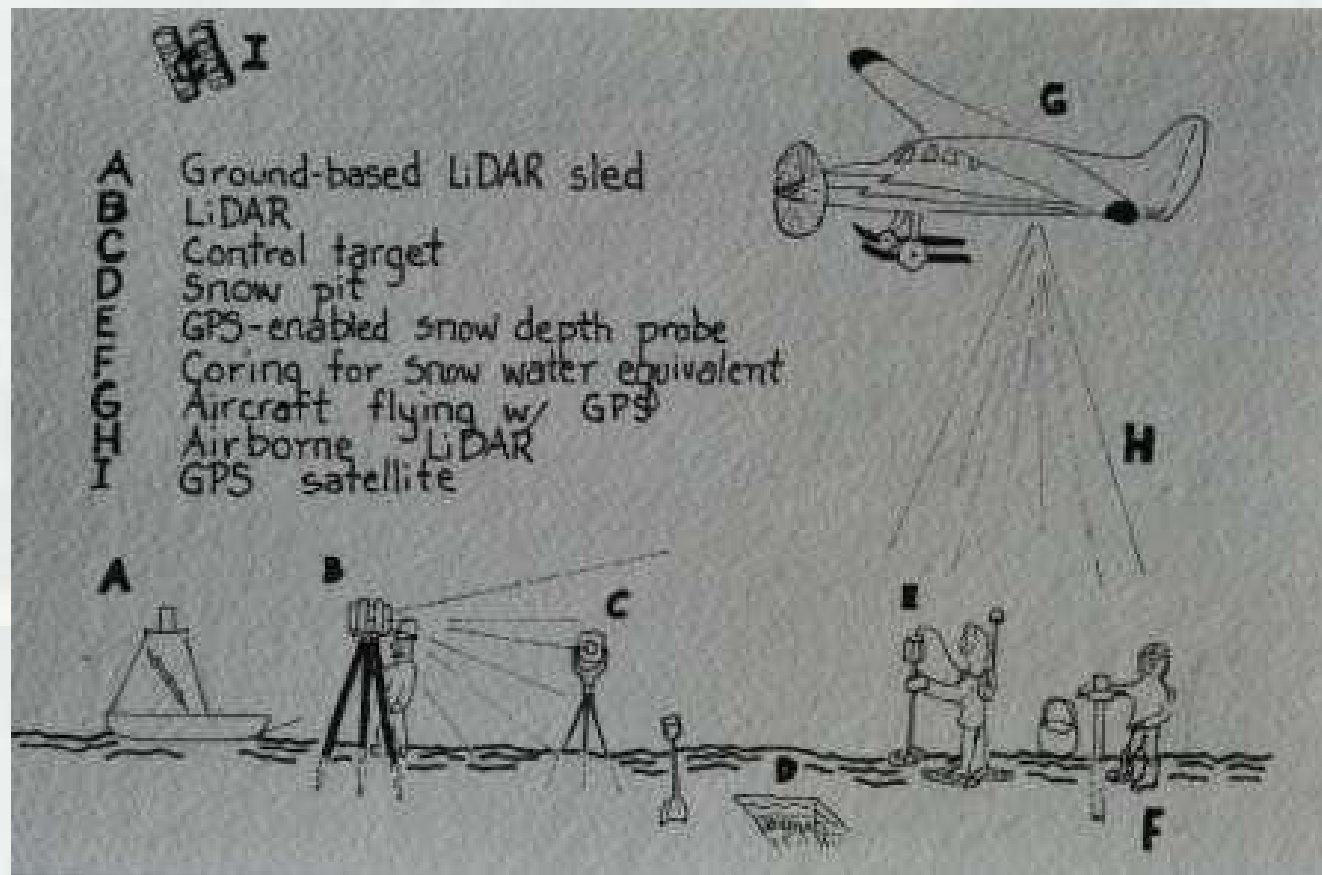 I
G
A Ground-based LiDAR sled
B LiDAR
C Control target
D Snow pit
E GPS-enabled snow depth probe
F Coring for snow water equivalent
G Aircraft flying w/ GPS
H Airborne LiDAR
I GPS satellite
H
A
B
C
E
D
F